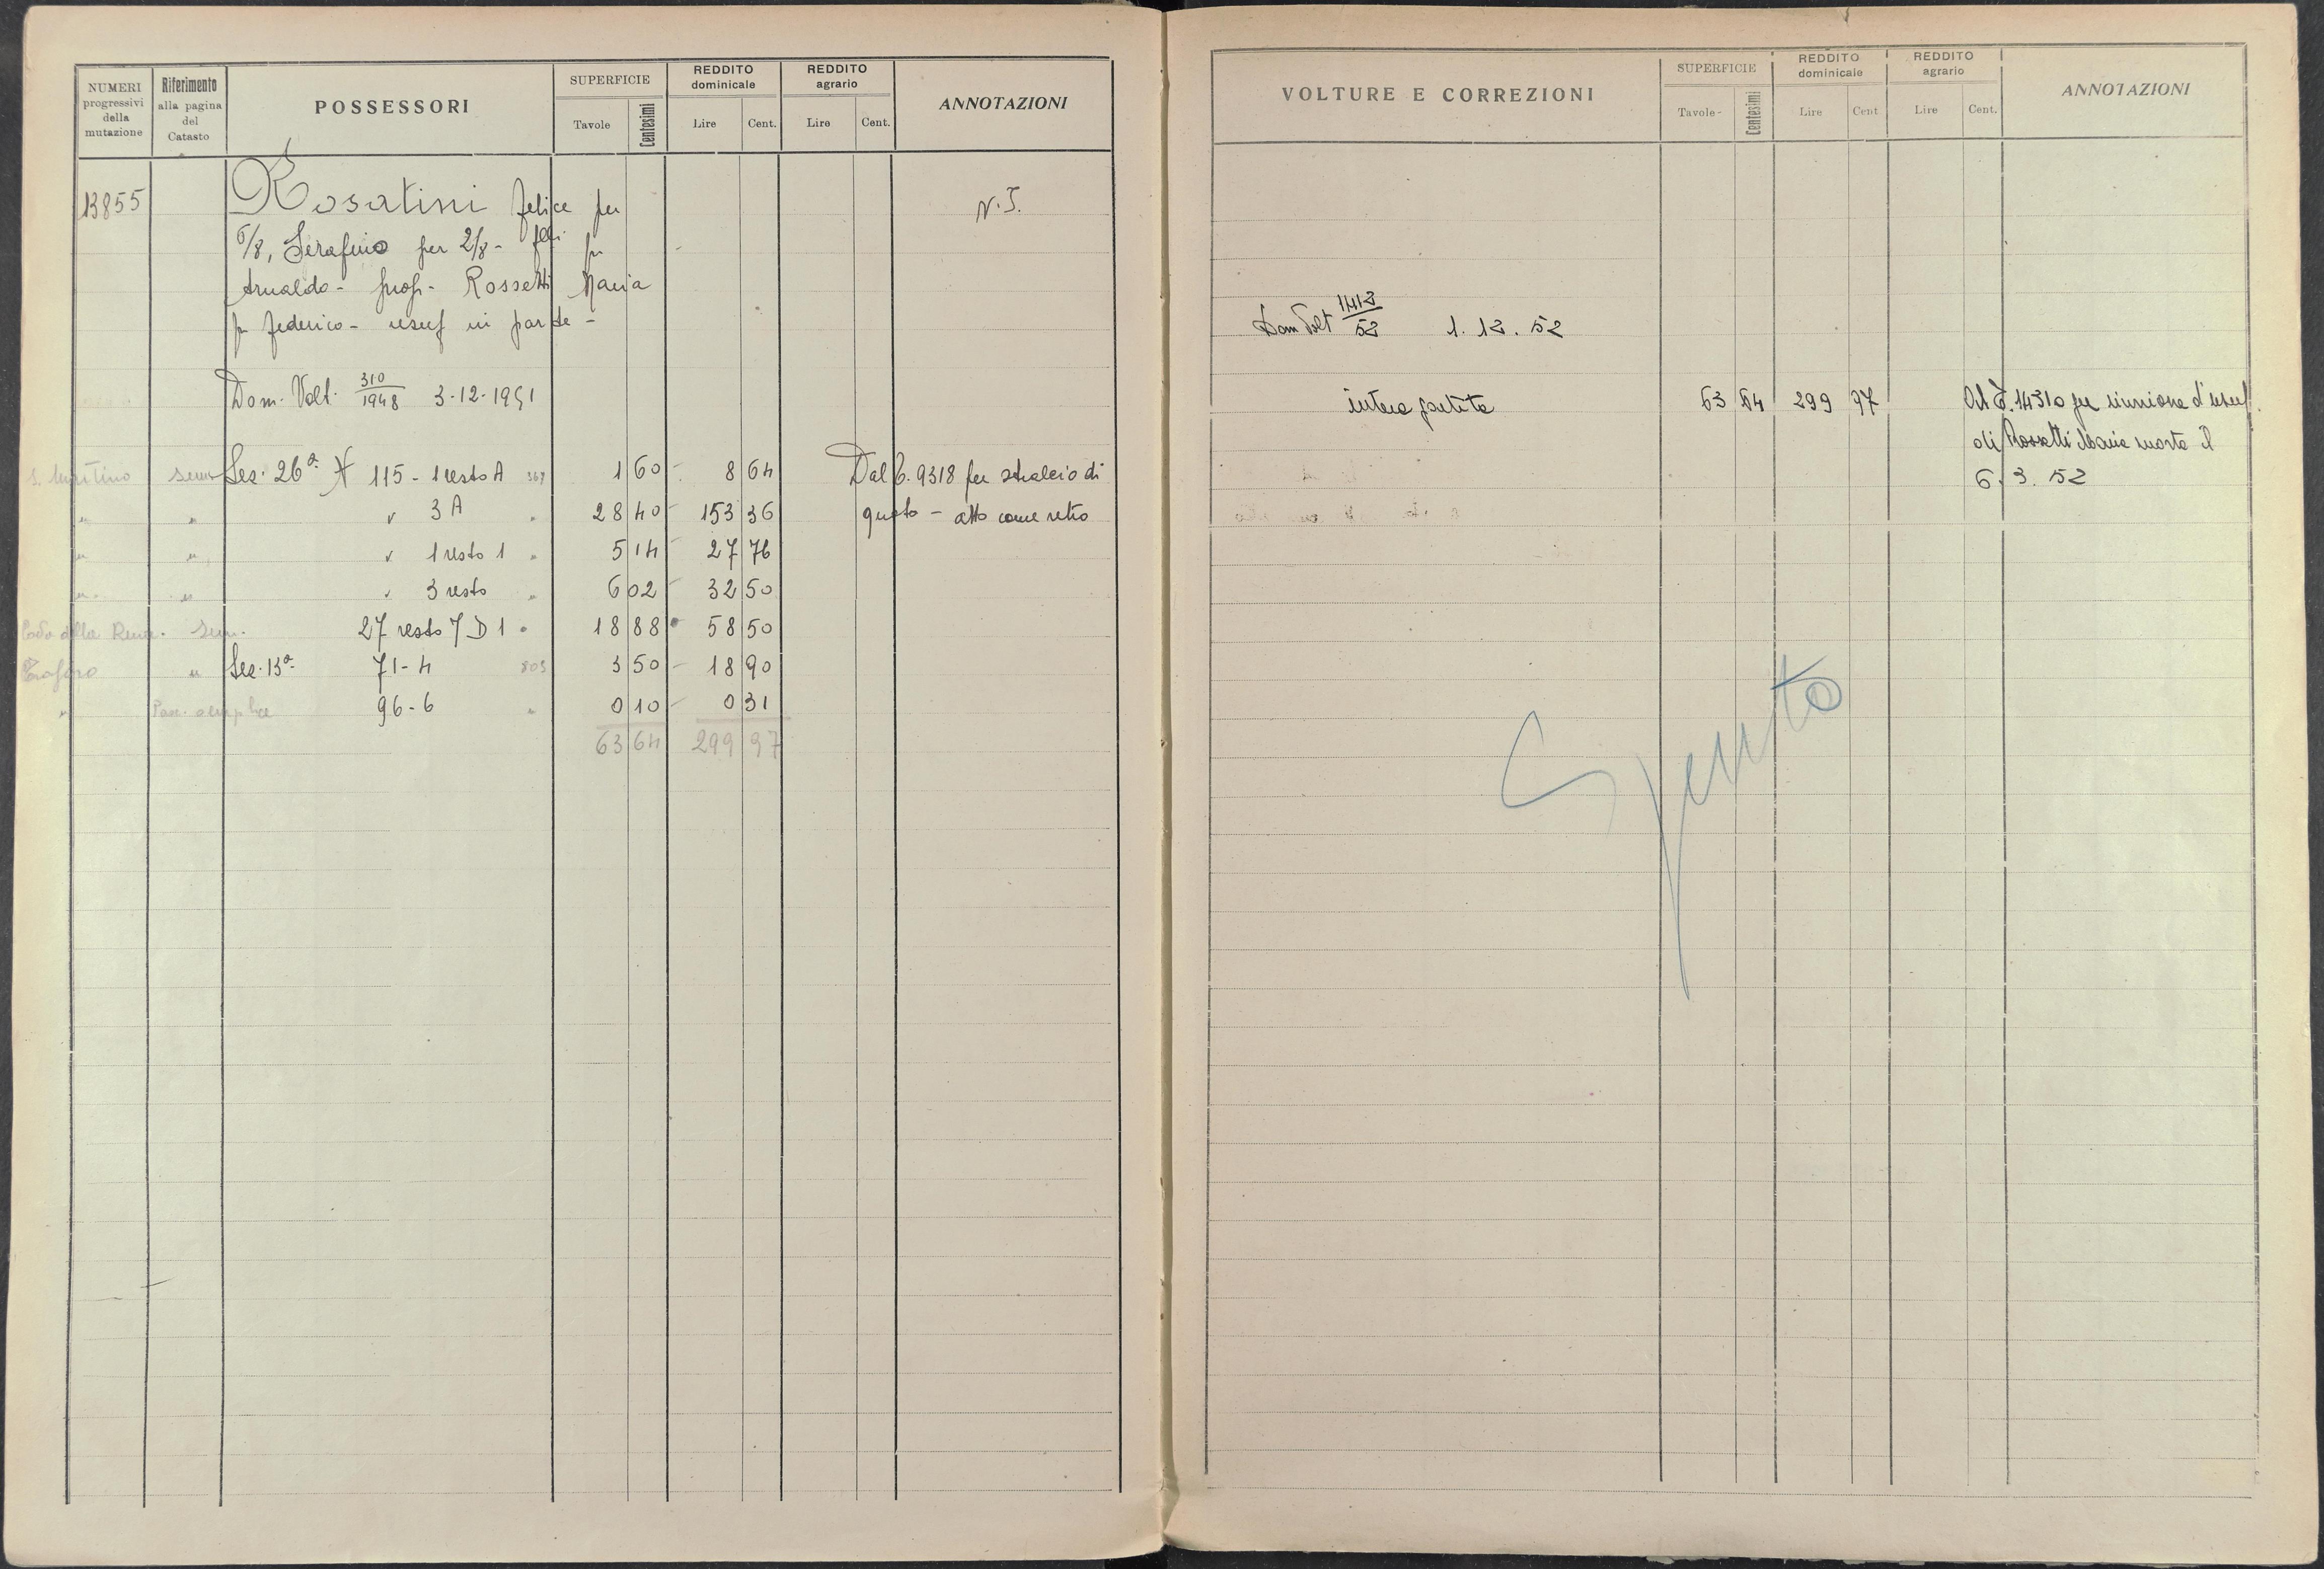 NUMERI progressivi della mutazione
Riferimento alla pagina del Catasto
POSSESSORI
SUPERFICIE
Tavole Centesimi
REDDITO dominicale
Lire Cent.
REDDITO agrario
Lire Cent.
ANNOTAZIONI
13855 Rosatini Felice per N.T.
6/8, Serafino per 2/8 - flli fu
Arnaldo - prop - Rossetti Maria
fu Federico - usuf in parte -
Dom. Volt. 310/1948 3-12-1951
sem Sez. 26a N 115 - 1 resto A 367 1 60 - 8 64 Dal P. 9318 per stralcio di
" " " 3 A " 28 40 - 153 36 quota - atto come retro
" " " 1 resto 1 " 5 14 - 27 76
" " " 3 resto " 6 02 - 32 50
sem. 27 resto 7 D 1 " 18 88 58 50
" Sez. 13a 71 - 4 803 3 50 - 18 90
" 96 - 6 " 0 10 - 0 31
63 64 299 97
VOLTURE E CORREZIONI
SUPERFICIE
Tavole- Centesimi
REDDITO dominicale
Lire Cent
REDDITO agrario
Lire Cent.
ANNOTAZIONI
Dom Volt 1412/52 1. 12. 52
intera partita 63 64 299 97 Al P. 14310 per riunione d'usuf.
di Rossetti Maria morta il
6. 3. 52
Spento